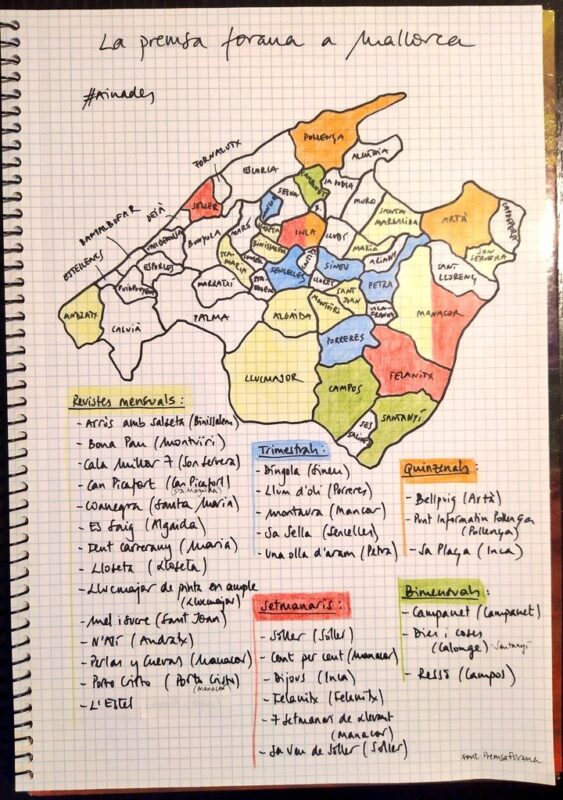 La premsa forana a Mallorca
#Ainades
POLLENÇA
ALCÚDIA
FORNALUTX
ESCORCA
SÓLLER
SELVA
CAMPANET
SA POBLA
MURO
SANTA MARGALIDA
ARTÀ
CAPDEPERA
SON SERVERA
DEIÀ
BANYALBUFAR
ESTELLENCS
VALLDEMOSSA
BUNYOLA
ESPORLES
PUIGPUNYENT
ANDRATX
CALVIÀ
PALMA
MARRATXÍ
STA MARIA
BINISSALEM
INCA
LLUBÍ
MARIA
SINEU
ARIANY
PETRA
SANT LLORENÇ
MANACOR
SENCELLES
SANT JOAN
MONTUÏRI
VILAFRANCA
ALGAIDA
PORRERES
LLUCMAJOR
CAMPOS
FELANITX
SES SALINES
SANTANYÍ
Revistes mensuals:
- Arròs amb salseta (Binissalem)
- Bona Pau (Montuïri)
- Cala Millor 7 (Son Servera)
- Can Picafort (Can Picafort)
Sta Margalida
- Coanegra (Santa Maria)
- Es Saig (Algaida)
- Dent Carerany (Maria)
- Lloseta (Lloseta)
- Llucmajor de pinta en ample
(Llucmajor)
- Mel i sucre (Sant Joan)
- N'Alí (Andratx)
- Perlas y Cuevas (Manacor)
- Porto Cristo (Porto Cristo)
Manacor
- L'Estel
Trimestrals:
- Díngola (Sineu)
- Llum d'oli (Porreres)
- Montaura (Mancor)
- Sa Sella (Sencelles)
- Una olla d'aram (Petra)
Setmanaris:
- Sóller (Sóller)
- Cent per cent (Manacor)
- Dijous (Inca)
- Felanitx (Felanitx)
- 7 setmanari de llevant
(Manacor)
- Sa Veu de Sóller (Sóller)
Quinzenals:
- Bellpuig (Artà)
- Punt Informatiu Pollença
(Pollença)
- Sa Plaça (Inca)
Bimensuals:
- Campanet (Campanet)
- Dies i coses
(Calonge) - Santanyí
- Ressò (Campos)
Font: Premsa Forana